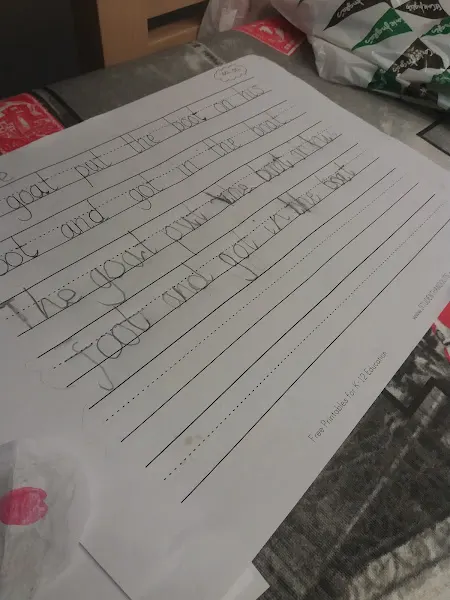 goat put the boot on his
oot and got in the boat
The goat put the boot on his
foot and got in the boat
Free Printables for K-12 Education